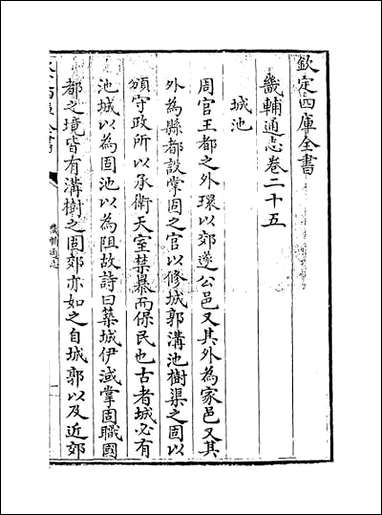 欽定四庫全書
畿輔通志卷二十五
城池
周官王都之外環以郊遂公邑又其外為家邑又其
外為縣都設掌固之官以修城郭溝池樹渠之固以
頒守政所以承衛天室禁暴而保民也古者城必有
池城以為固池以為阻故詩曰築城伊淢掌固職國
都之境皆有溝樹之固郊亦如之自城郭以及近郊
畿輔通志